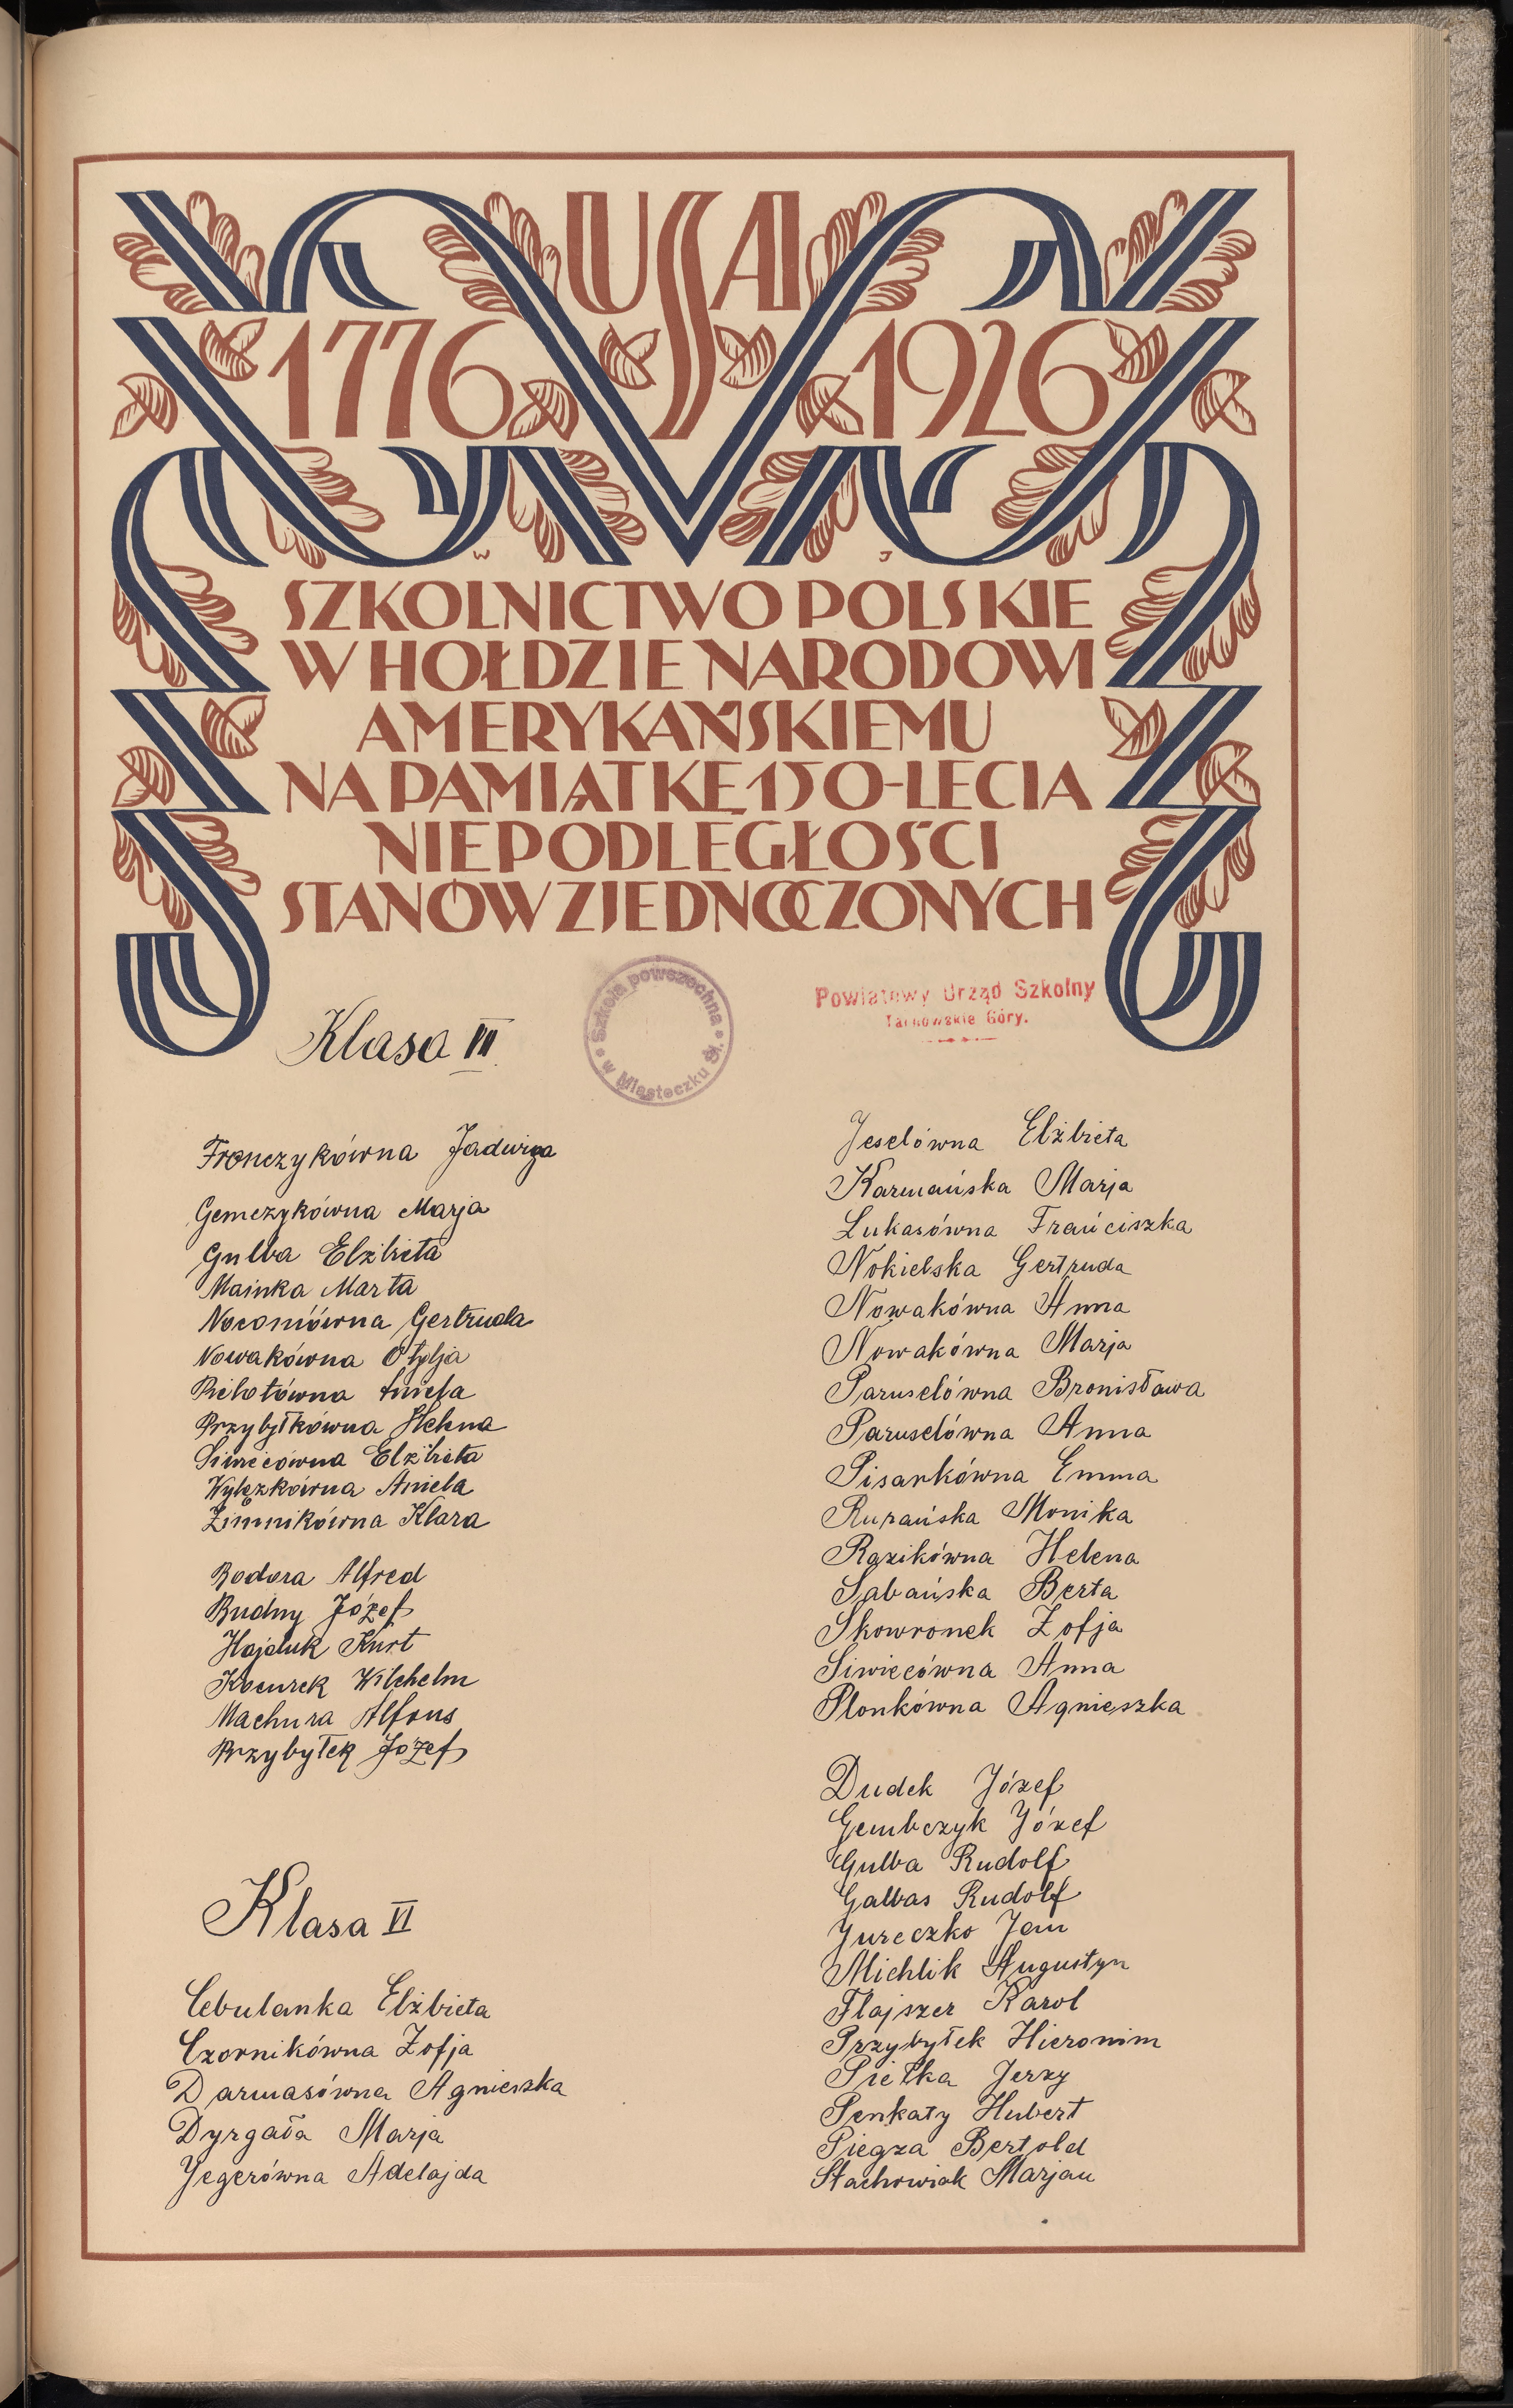 USA
1776 1926
W J
SZKOLNICTWO POLSKIE
W HOŁDZIE NARODOWI
AMERYKAŃSKIEMU
NA PAMIĄTKĘ 150-LECIA
NIEPODLEGŁOŚCI
STANÓW ZJEDNOCZONYCH
Szkoła powszechna
w Miasteczku Śl.
Powiatowy Urząd Szkolny
Tarnowskie Góry.
Klasa III.
Fronczykówna Jadwiga
Gemczykówna Marja
Gulba Elżbieta
Mainka Marta
Noconiówna Gertruda
Nowakówna Otylja
Pielotówna Aniela
Przybyłkówna Helena
Siwiecówna Elżbieta
Wylężkówna Aniela
Zimnikówna Klara
Bodora Alfred
Budny Józef
Hajduk Kurt
Kocurek Wilhelm
Machura Alfons
Przybyłek Józef
Klasa VI
Cebulanka Elżbieta
Czornikówna Zofja
Darmasówna Agnieszka
Dyrgała Marja
Jegerówna Adelajda
Jeselówna Elżbieta
Karmańska Marja
Lukasówna Frańciszka
Nokielska Gertruda
Nowakówna Anna
Nowakówna Marja
Paruselówna Bronisława
Paruselówna Anna
Pisarkówna Emma
Rurańska Monika
Rązikówna Helena
Sabańska Berta
Skowronek Zofja
Siwiecówna Anna
Plonkówna Agnieszka
Dudek Józef
Gembczyk Józef
Gulba Rudolf
Galbas Rudolf
Jureczko Jan
Michlik Augustyn
Flajszer Karol
Przybyłek Hieronim
Piełka Jerzy
Penkaty Hubert
Piegza Bertold
Stachowiak Marjan